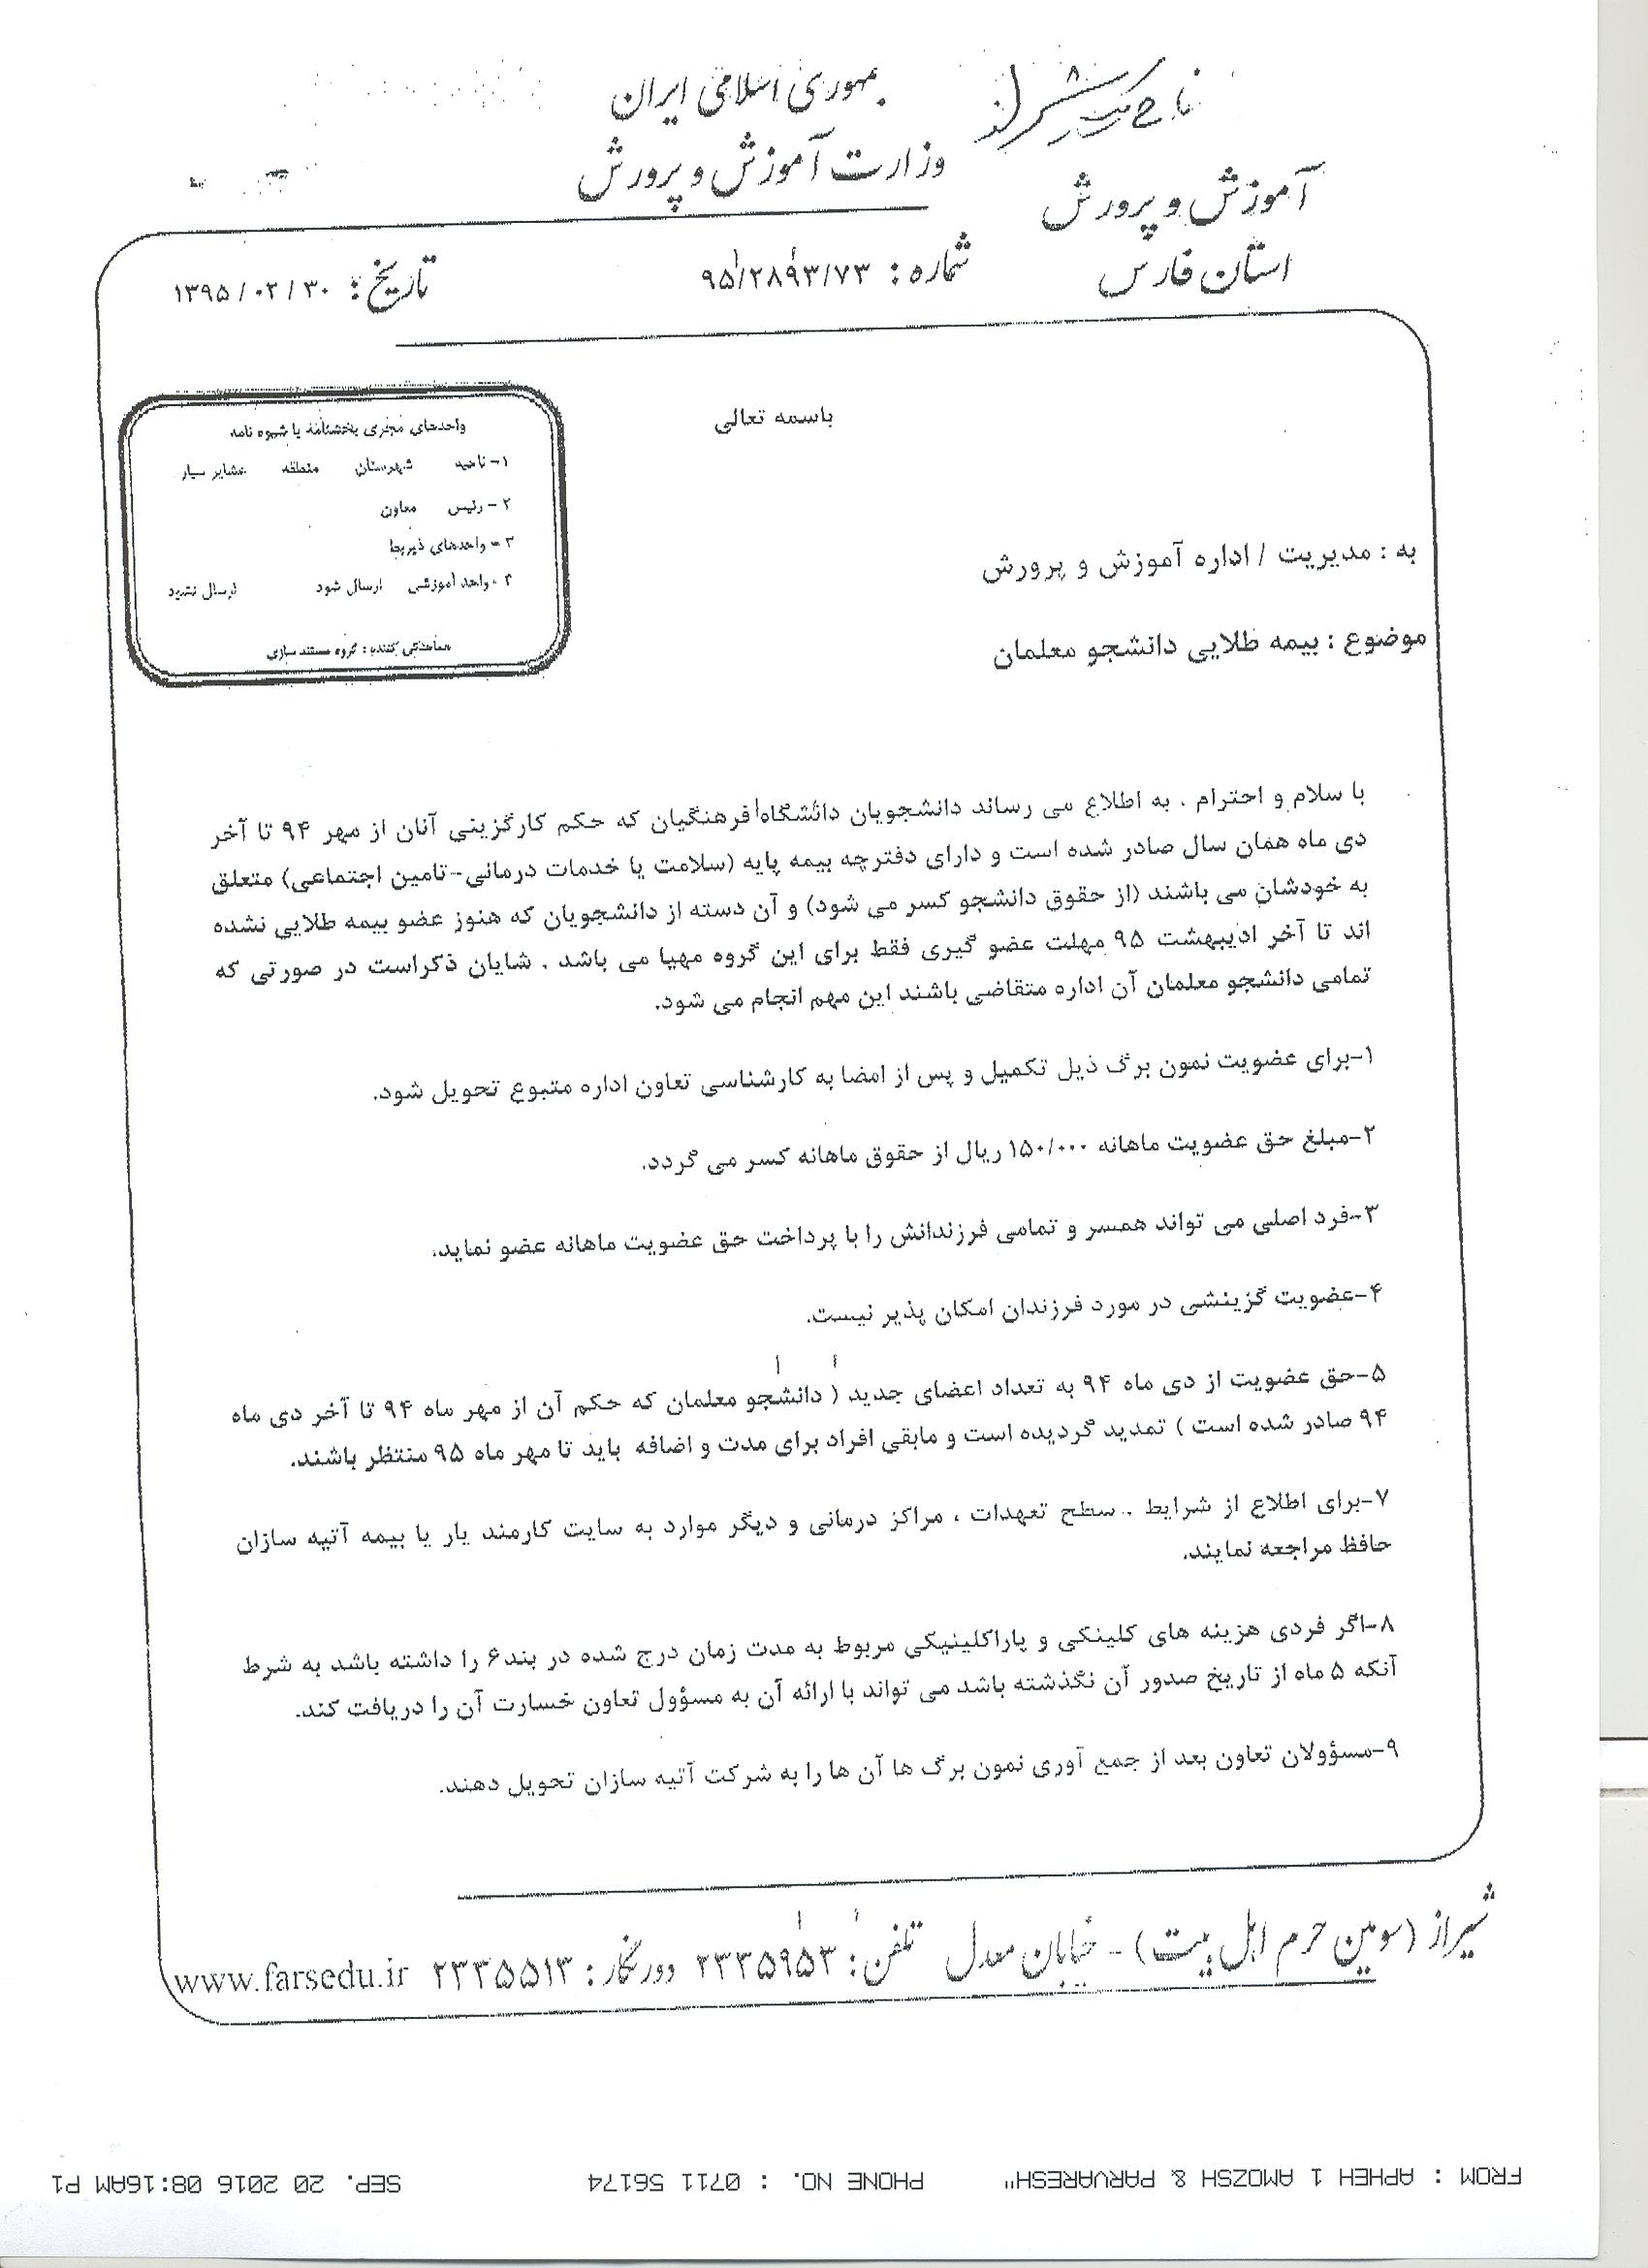 جمهوری اسلامی ایران
وزارت آموزش و پرورش
آموزش و پرورش
استان فارس
شماره : ۹۵/۲۸۹۳/۷۳
تاریخ : ۱۳۹۵/۰۲/۳۰
باسمه تعالی
واحدهای مجری بخشنامه یا شیوه نامه
۱- ناحیه شهرستان منطقه عشایر سیار
۲- رئیس معاون
۳- واحدهای ذیربط
۴- واحد آموزشی ارسال شود ارسال نشود
هماهنگی کننده : گروه مستند سازی
به : مدیریت / اداره آموزش و پرورش
موضوع : بیمه طلایی دانشجو معلمان
با سلام و احترام . به اطلاع می رساند دانشجویان دانشگاه فرهنگیان که حکم کارگزینی آنان از مهر ۹۴ تا آخر
دی ماه همان سال صادر شده است و دارای دفترچه بیمه پایه (سلامت یا خدمات درمانی-تامین اجتماعی) متعلق
به خودشان می باشند (از حقوق دانشجو کسر می شود) و آن دسته از دانشجویان که هنوز عضو بیمه طلایی نشده
اند تا آخر اذیبهشت ۹۵ مهلت عضو گیری فقط برای این گروه مهیا می باشد . شایان ذکراست در صورتی که
تمامی دانشجو معلمان آن اداره متقاضی باشند این مهم انجام می شود.
۱-برای عضویت نمون برگ ذیل تکمیل و پس از امضا به کارشناسی تعاون اداره متبوع تحویل شود.
۲-مبلغ حق عضویت ماهانه ۱۵۰/۰۰۰ ریال از حقوق ماهانه کسر می گردد.
۳-فرد اصلی می تواند همسر و تمامی فرزندانش را با پرداخت حق عضویت ماهانه عضو نماید.
۴-عضویت گزینشی در مورد فرزندان امکان پذیر نیست.
۵-حق عضویت از دی ماه ۹۴ به تعداد اعضای جدید ( دانشجو معلمان که حکم آن از مهر ماه ۹۴ تا آخر دی ماه
۹۴ صادر شده است ) تمدید گردیده است و مابقی افراد برای مدت و اضافه باید تا مهر ماه ۹۵ منتظر باشند.
۷-برای اطلاع از شرایط ، سطح تعهدات ، مراکز درمانی و دیگر موارد به سایت کارمند یار یا بیمه آتیه سازان
حافظ مراجعه نمایند.
۸-اگر فردی هزینه های کلینکی و پاراکلینیکی مربوط به مدت زمان درج شده در بند۶ را داشته باشد به شرط
آنکه ۵ ماه از تاریخ صدور آن نگذشته باشد می تواند با ارائه آن به مسؤول تعاون خسارت آن را دریافت کند.
۹-مسؤولان تعاون بعد از جمع آوری نمون برگ ها آن ها را به شرکت آتیه سازان تحویل دهند.
شیراز (سومین حرم اهل بیت) - خیابان معدل تلفن : ۲۳۳۵۹۵۳ دورنگار : ۲۳۳۵۵۱۳ www.farsedu.ir
FROM : APHEH 1 AMOZSH & PARVARESH" PHONE NO. : 0711 56174 SEP. 20 2016 08:16AM P1